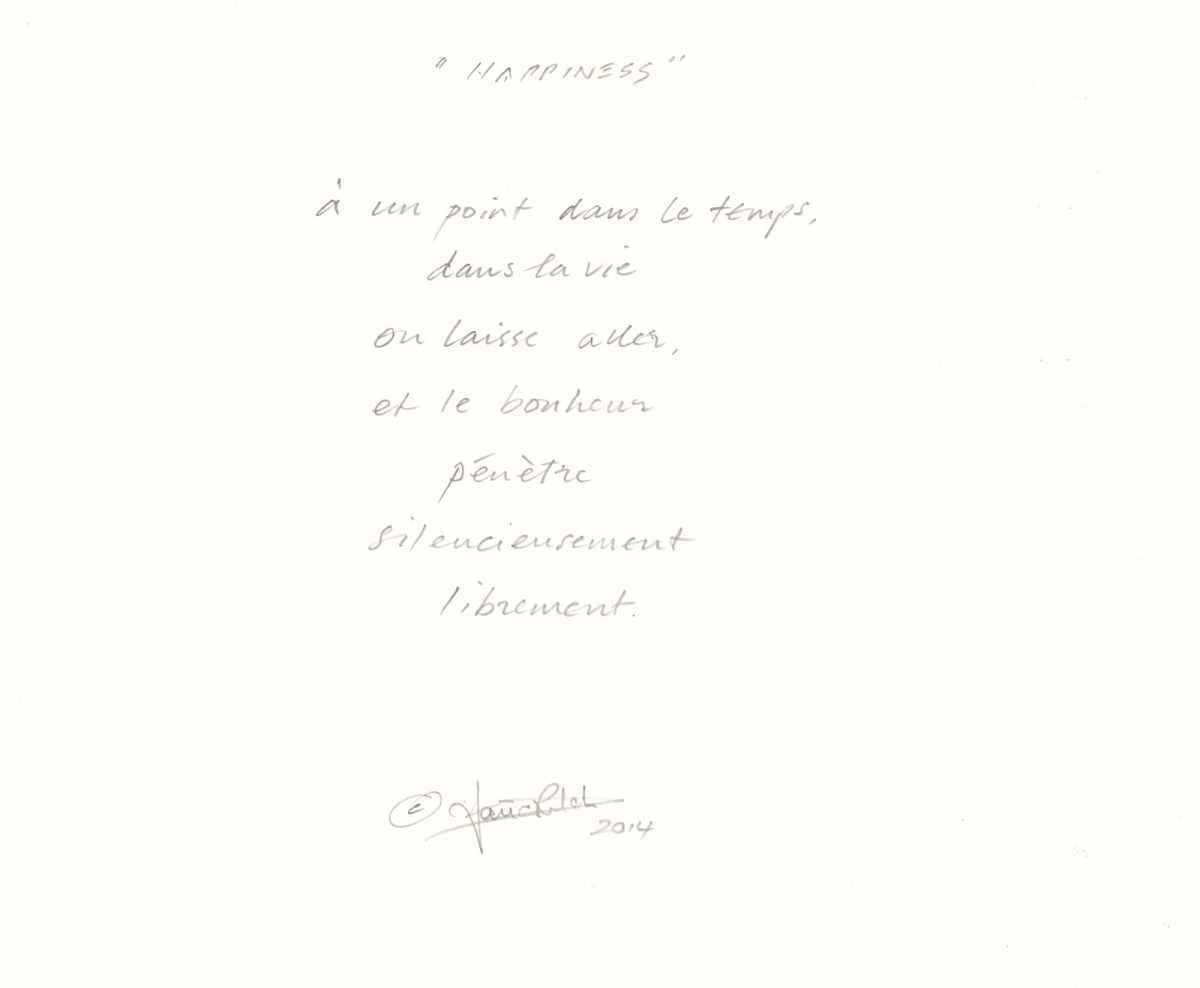 "HAPPINESS"
à un point dans le temps,
dans la vie
on laisse aller,
et le bonheur
pénètre
silencieusement
librement.
©
2014